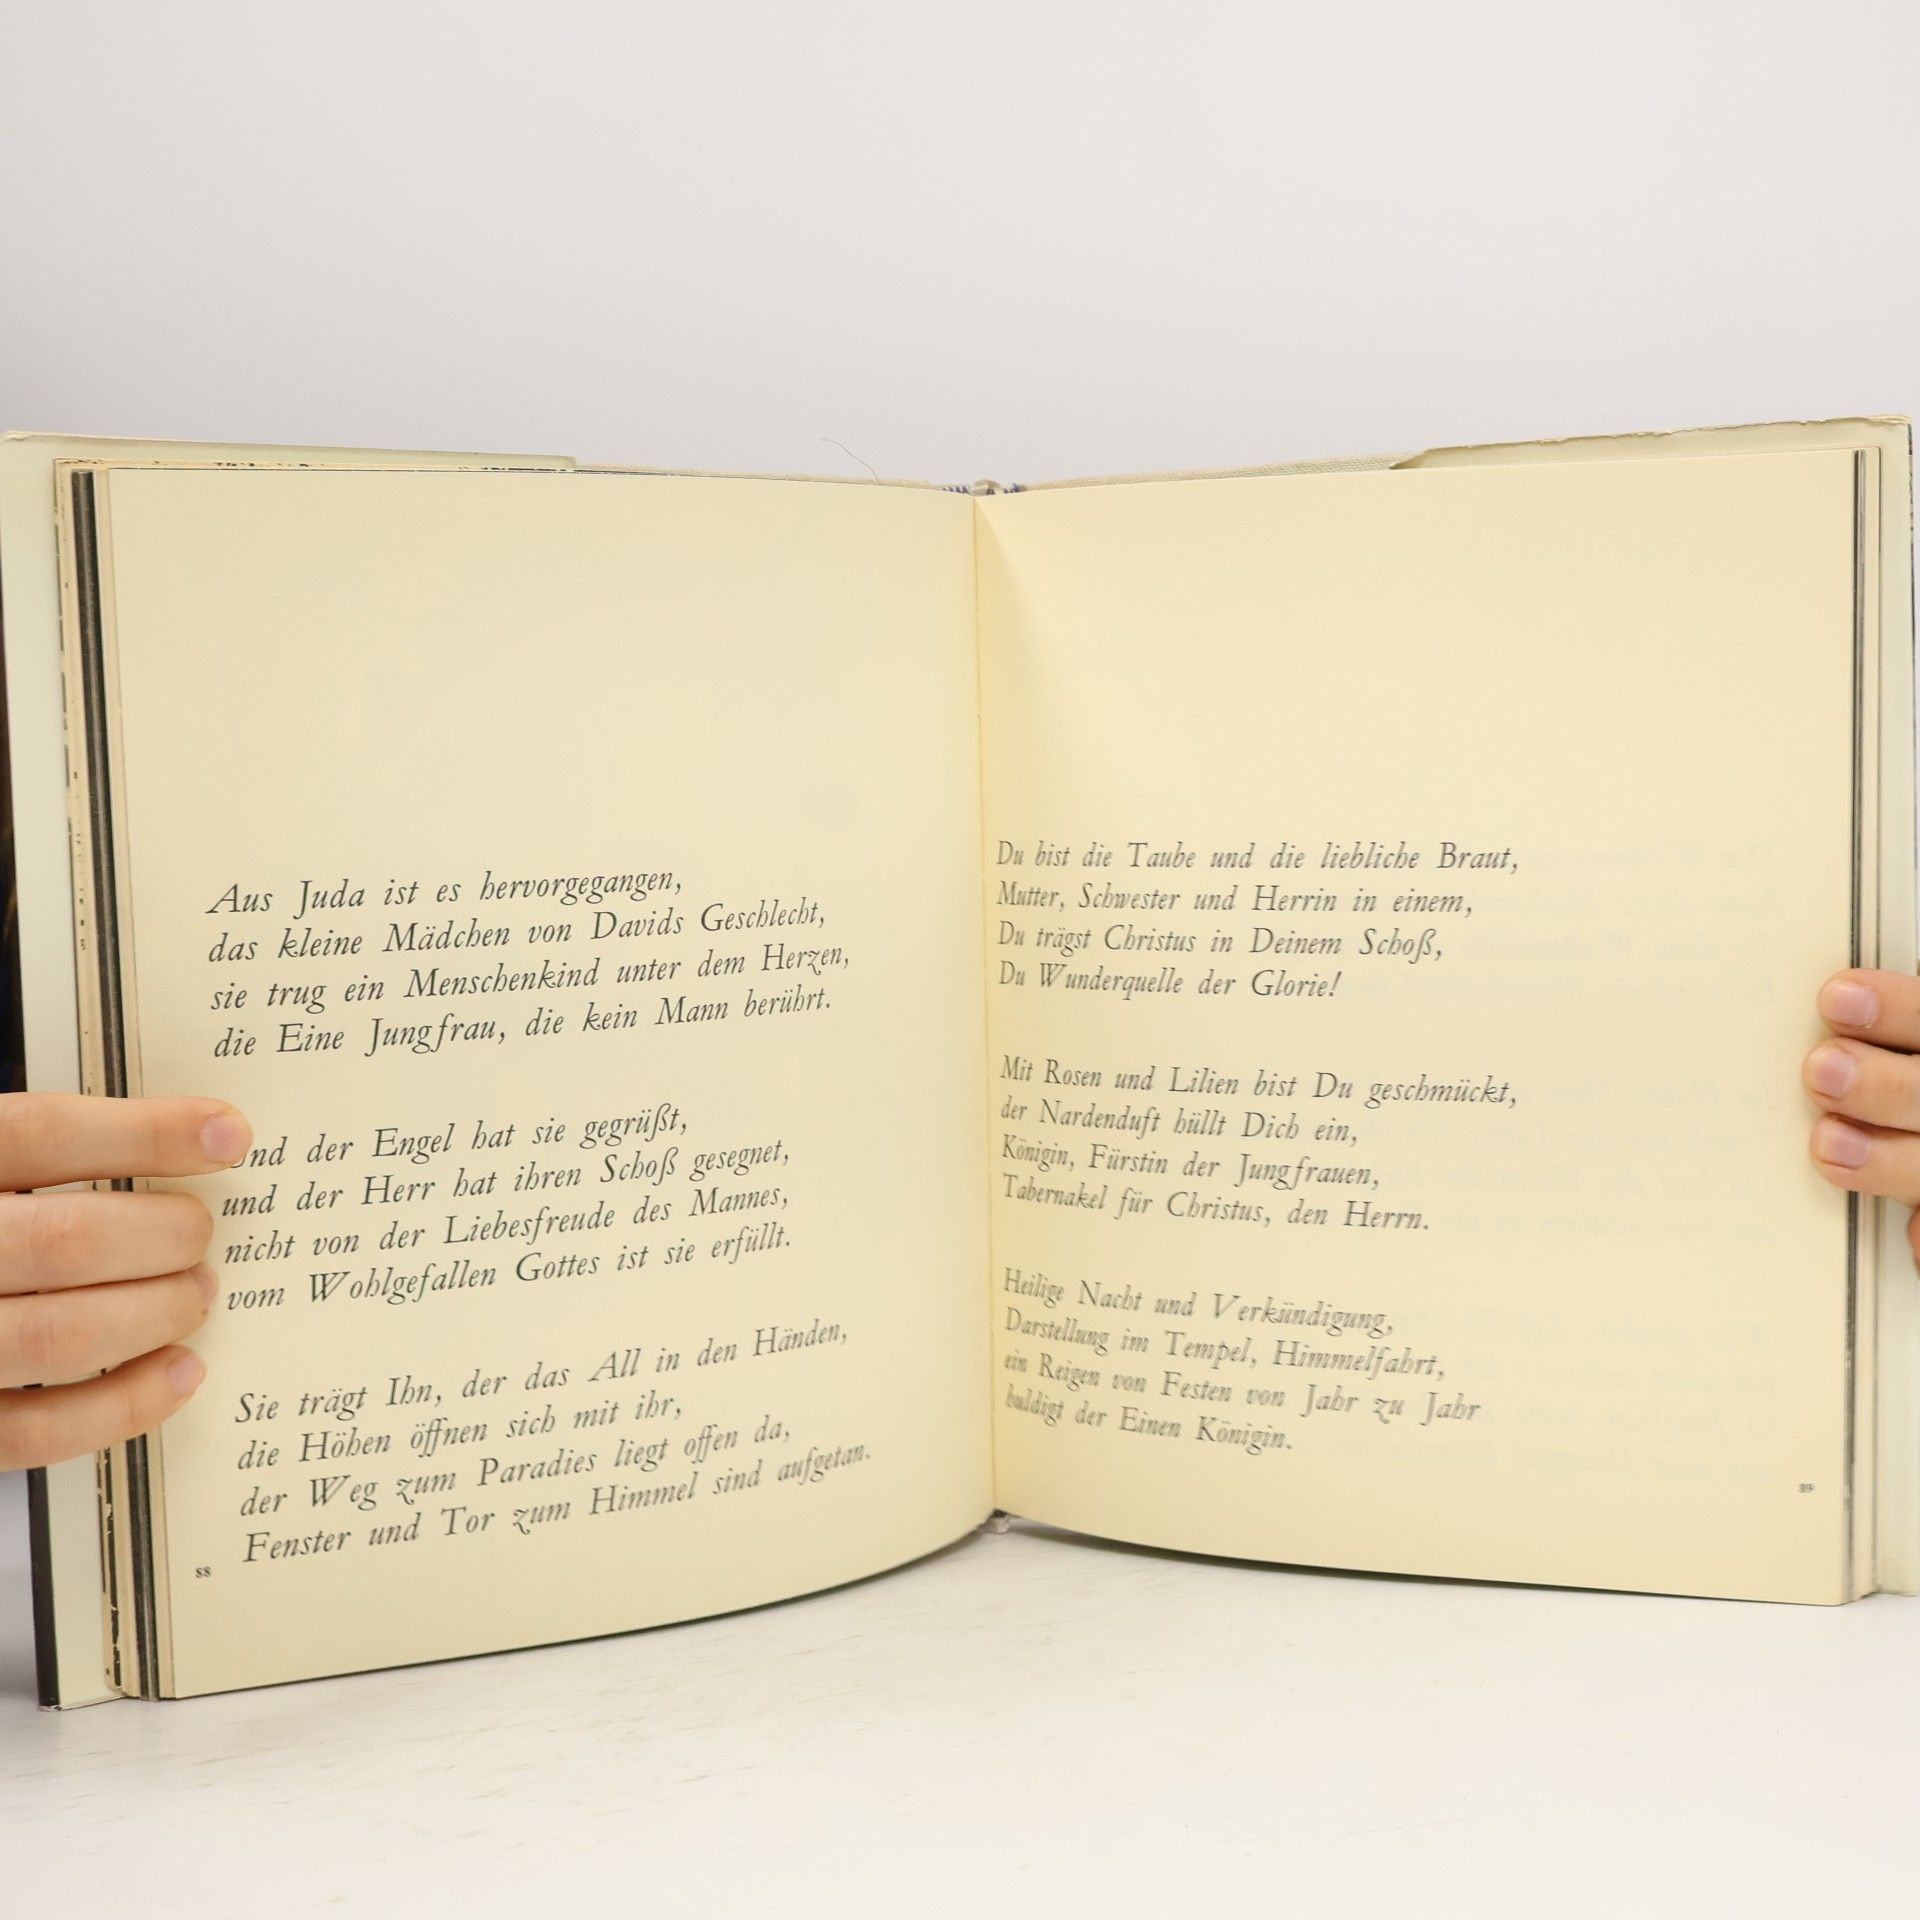 Aus Juda ist es hervorgegangen,
das kleine Mädchen von Davids Geschlecht,
sie trug ein Menschenkind unter dem Herzen,
die Eine Jungfrau, die kein Mann berührt.
Und der Engel hat sie gegrüßt,
und der Herr hat ihren Schoß gesegnet,
nicht von der Liebesfreude des Mannes,
vom Wohlgefallen Gottes ist sie erfüllt.
Sie trägt Ihn, der das All in den Händen,
die Höhen öffnen sich mit ihr,
der Weg zum Paradies liegt offen da,
Fenster und Tor zum Himmel sind aufgetan.
88
Du bist die Taube und die liebliche Braut,
Mutter, Schwester und Herrin in einem,
Du trägst Christus in Deinem Schoß,
Du Wunderquelle der Glorie!
Mit Rosen und Lilien bist Du geschmückt,
der Nardenduft hüllt Dich ein,
Königin, Fürstin der Jungfrauen,
Tabernakel für Christus, den Herrn.
Heilige Nacht und Verkündigung,
Darstellung im Tempel, Himmelfahrt,
ein Reigen von Festen von Jahr zu Jahr
huldigt der Einen Königin.